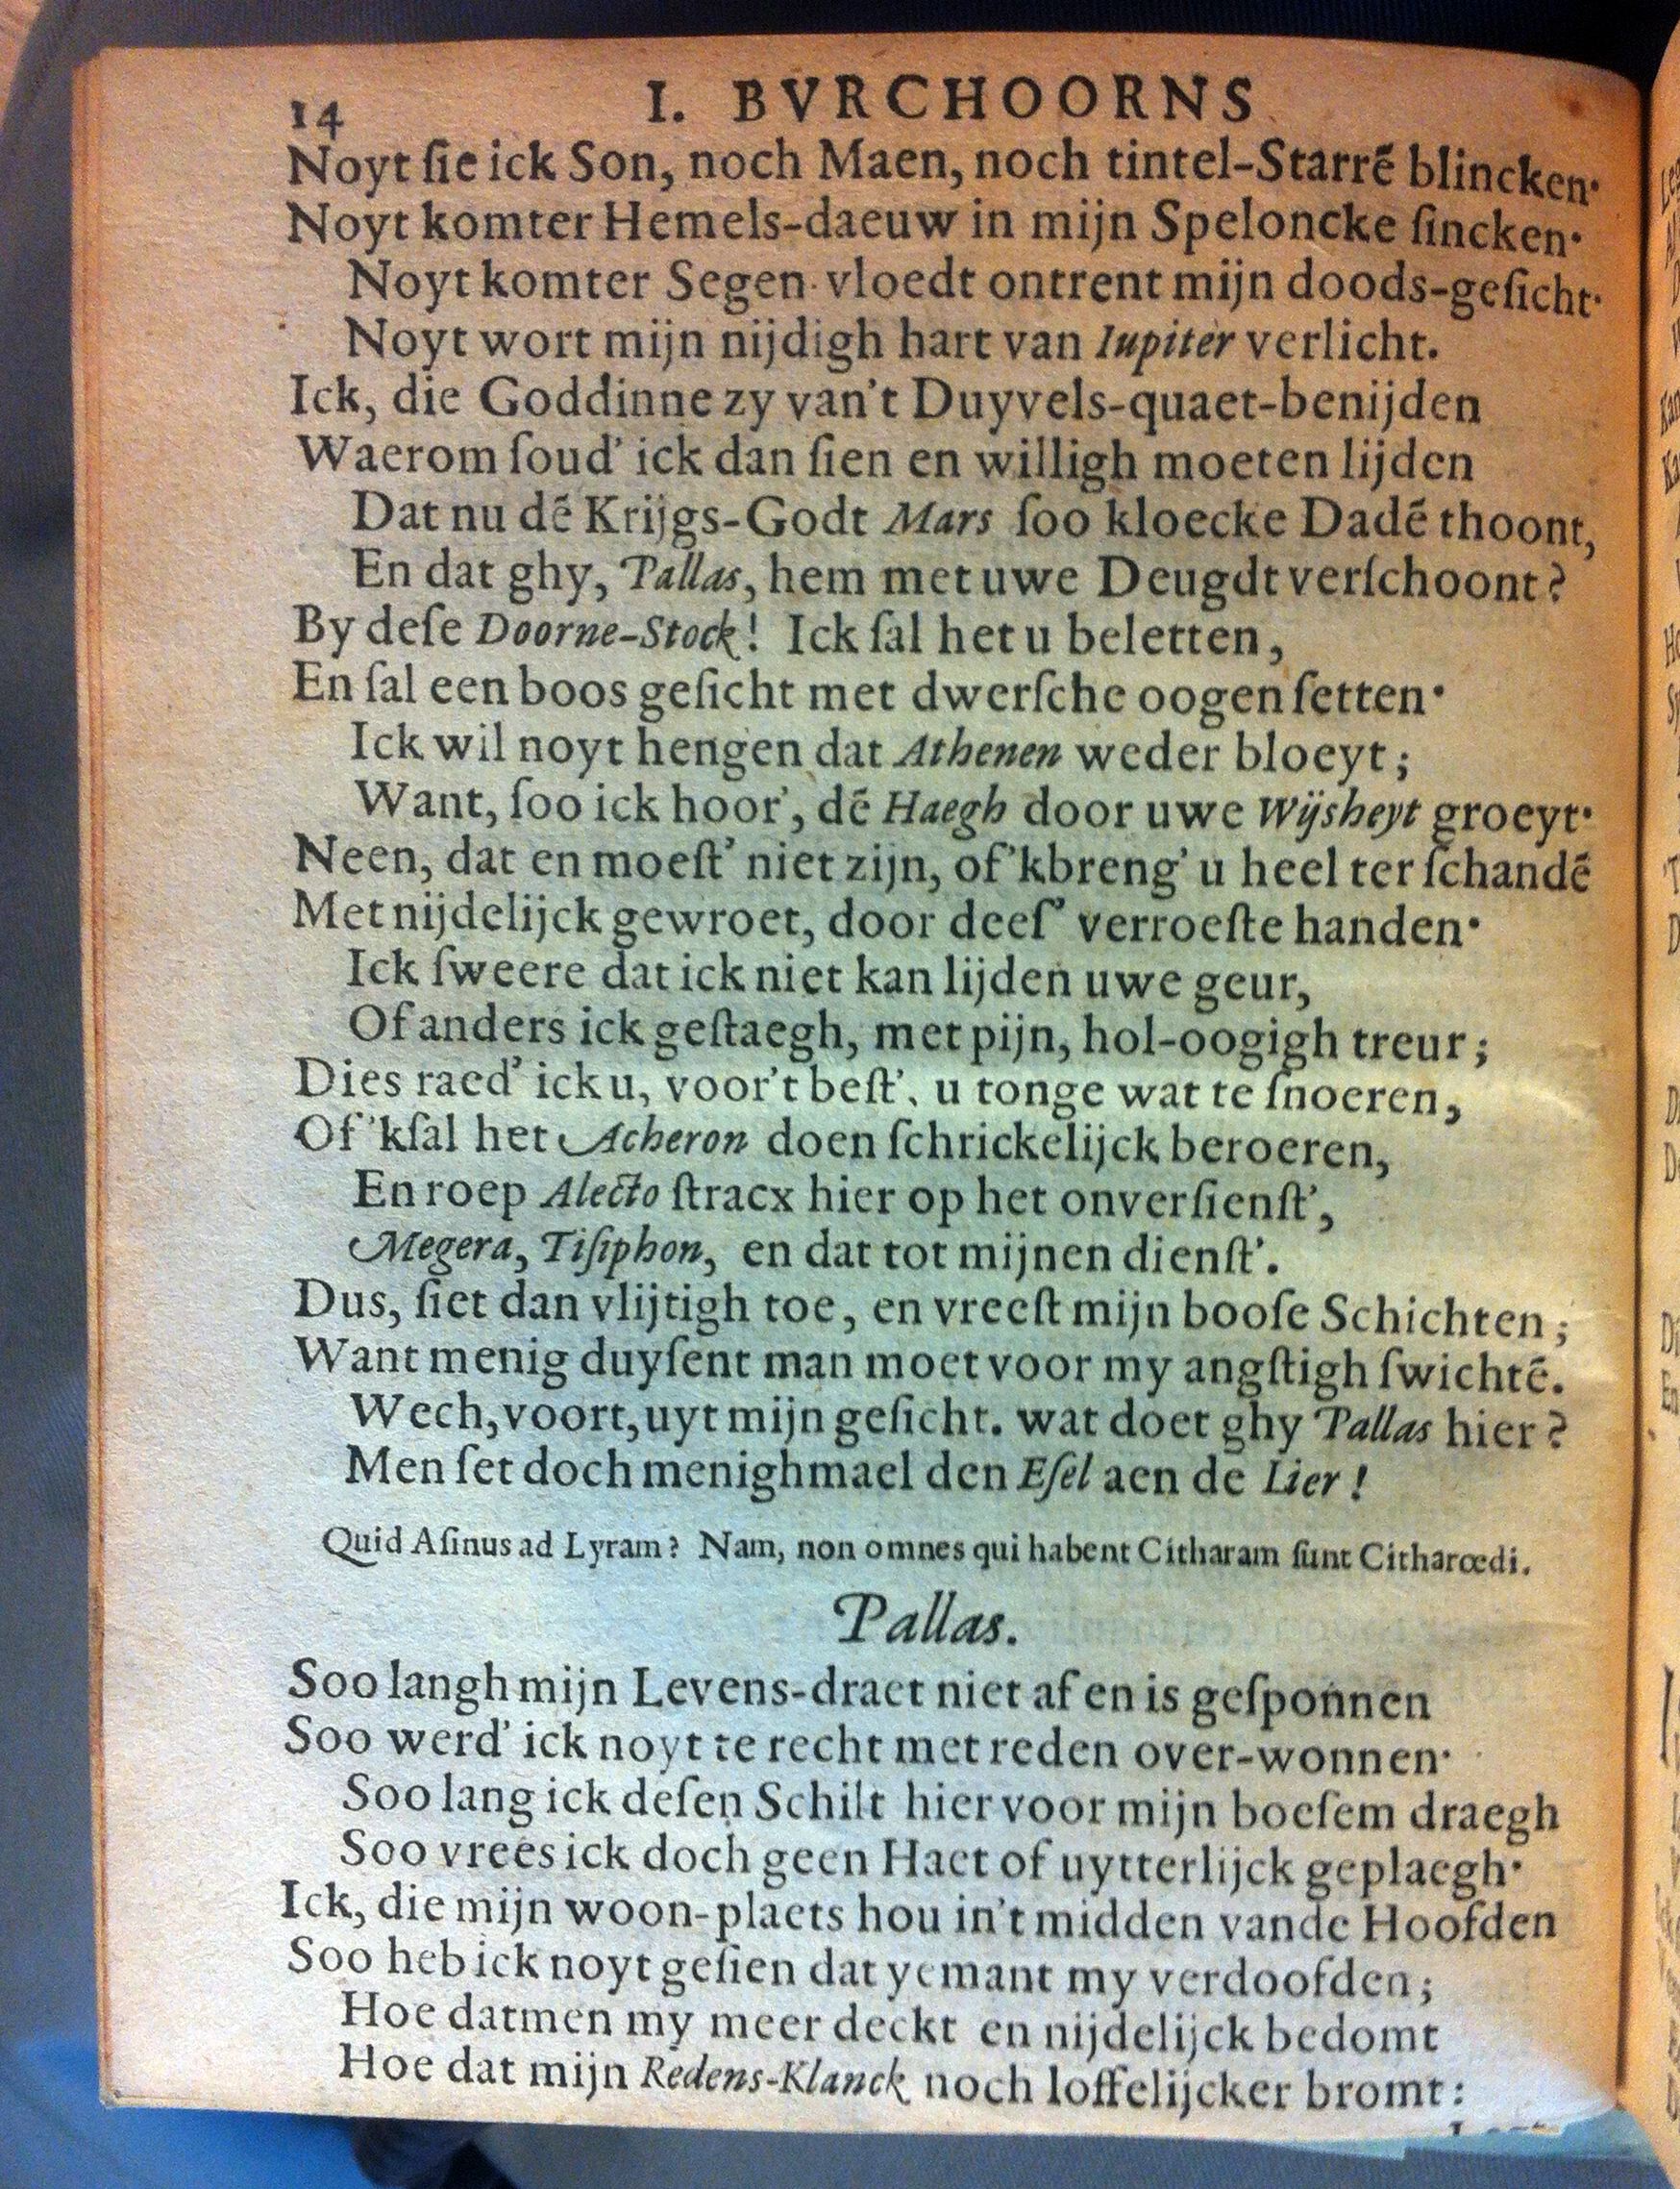 14 I. BVRCHOORNS
Noyt ſie ick Son, noch Maen, noch tintel-Starrē blincken·
Noyt komter Hemels-daeuw in mijn Speloncke ſincken·
Noyt komter Segen vloedt ontrent mijn doods-geſicht·
Noyt wort mijn nijdigh hart van Iupiter verlicht.
Ick, die Goddinne zy van't Duyvels-quaet-benijden
Waerom ſoud' ick dan ſien en willigh moeten lijden
Dat nu dē Krijgs-Godt Mars ſoo kloecke Dadē thoont,
En dat ghy, Pallas, hem met uwe Deugdt verſchoont?
By deſe Doorne-Stock! Ick ſal het u beletten,
En ſal een boos geſicht met dwerſche oogen ſetten·
Ick wil noyt hengen dat Athenen weder bloeyt;
Want, ſoo ick hoor', dē Haegh door uwe Wijsheyt groeyt·
Neen, dat en moeſt' niet zijn, of 'kbreng' u heel ter ſchandē
Met nijdelijck gewroet, door deeſ' verroeſte handen·
Ick ſweere dat ick niet kan lijden uwe geur,
Of anders ick geſtaegh, met pijn, hol-oogigh treur;
Dies raed' ick u, voor't beſt', u tonge wat te ſnoeren,
Of 'kſal het Acheron doen ſchrickelijck beroeren,
En roep Alecto ſtracx hier op het onverſienſt',
Megera, Tiſiphon, en dat tot mijnen dienſt'.
Dus, ſiet dan vlijtigh toe, en vreeſt mijn booſe Schichten;
Want menig duyſent man moet voor my angſtigh ſwichtē.
Wech, voort, uyt mijn geſicht. wat doet ghy Pallas hier?
Men ſet doch menighmael den Eſel aen de Lier!
Quid Aſinus ad Lyram? Nam, non omnes qui habent Citharam ſunt Citharœdi.
Pallas.
Soo langh mijn Levens-draet niet af en is geſponnen
Soo werd' ick noyt te recht met reden over-wonnen·
Soo lang ick deſen Schilt hier voor mijn boeſem draegh
Soo vrees ick doch geen Haet of uytterlijck geplaegh·
Ick, die mijn woon-plaets hou in't midden vande Hoofden
Soo heb ick noyt geſien dat yemant my verdoofden;
Hoe datmen my meer deckt en nijdelijck bedomt
Hoe dat mijn Redens-Klanck noch loffelijcker bromt: